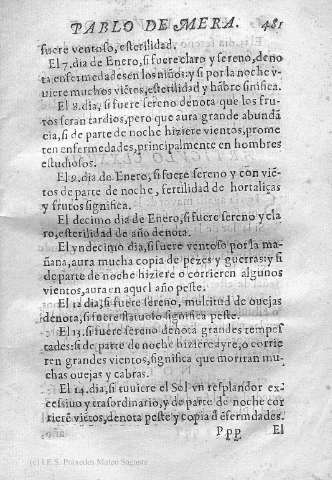 PABLO DE MERA. 481
fuere ventoso, esterilidad.
El 7. dia de Enero, si fuere claro y sereno, deno
ta enfermedades en los niños: y si por la noche v
uiere muchos viẽtos, esterilidad y hãbre sinifica.
El 8. dia, si fuere sereno denota que los fru-
tos seran tardios, pero que aura grande abundã
cia, si de parte de noche hiziere vientos, prome
ten enfermedades, principalmente en hombres
estudiosos.
El 9. dia de Enero, si fuere sereno y con viẽ-
tos de parte de noche, fertilidad de hortaliças
y frutos significa.
El decimo dia de Enero, si fuere sereno y cla
ro, esterilidad de año denota.
El yndecimo dia, si fuere ventoso por la ma-
ñana, aura mucha copia de pezes y guerras: y si
de parte de noche hiziere o corrieren algunos
vientos, aura en aquel año peste.
El 12 dia, si fuere sereno, mulcitud de ouejas
denota, si fuere flatuoso significa peste.
El 13. si fuere sereno denota grandes tempes
tades: si de parte de noche hiziere ayre, o corrie
ren grandes vientos, significa que moriran mu-
chas ouejas y cabras.
El 14. dia, si tuuiere el Sol vn resplandor ex-
cessiuo y trasordinario, y de parte de noche cor
rierẽ viẽtos, denota peste y copia d ẽfermdades.
Ppp El
(c) I.E.S. Práxedes Mateo Sagasta